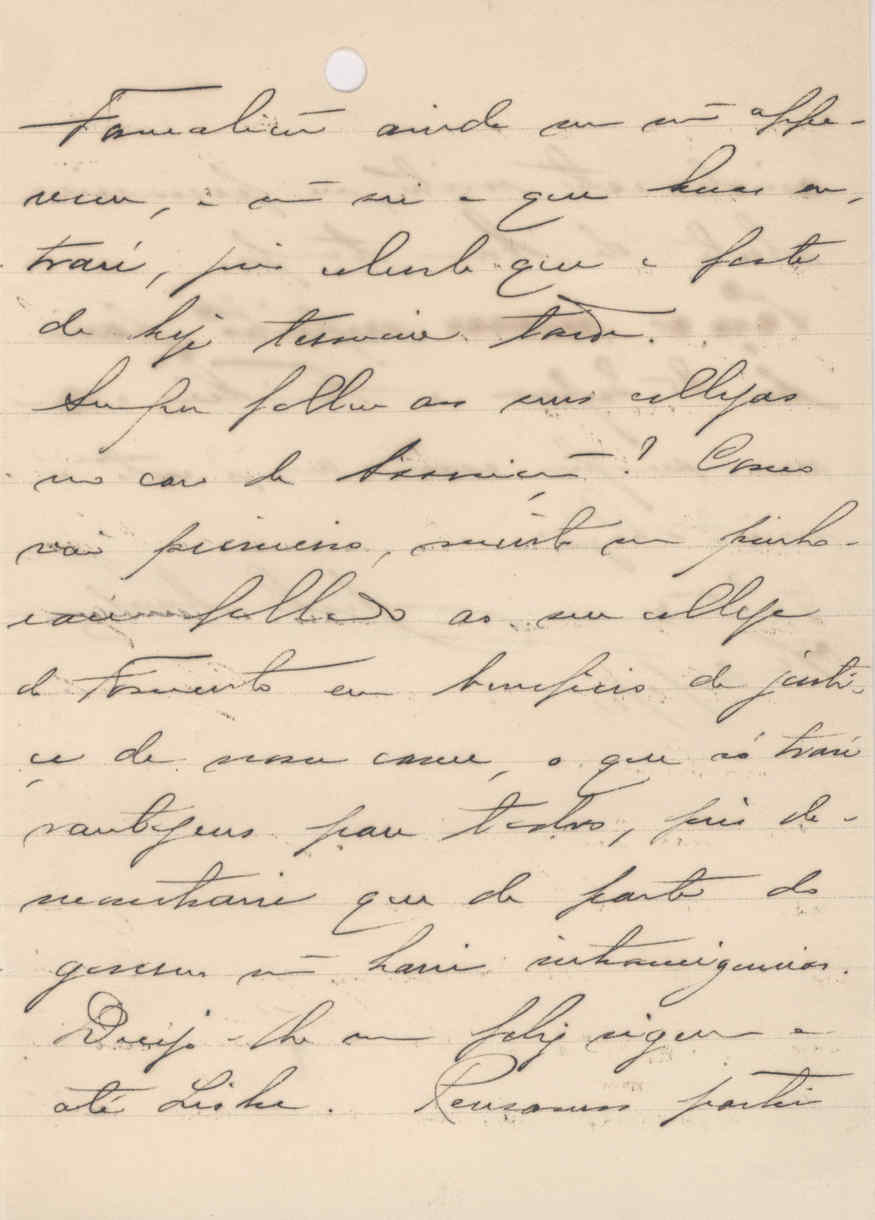 Famalicão ainda me não appa-
receu, e não sei a que horas en-
trará, pois calculo que a festa
de hoje termine tarde.
Sempre fallou aos seus collegas
no caso da
vai primeiro, muito me
fallado ao seu collega
do Fomento em beneficio da justi-
ça da nossa causa, o que só trará
vantagens para todos, pois de-
monstraria que da parte do
governo não havia intransigencias.
Desejo-lhe uma feliz viagem e
até Lisboa. Pensamos partir